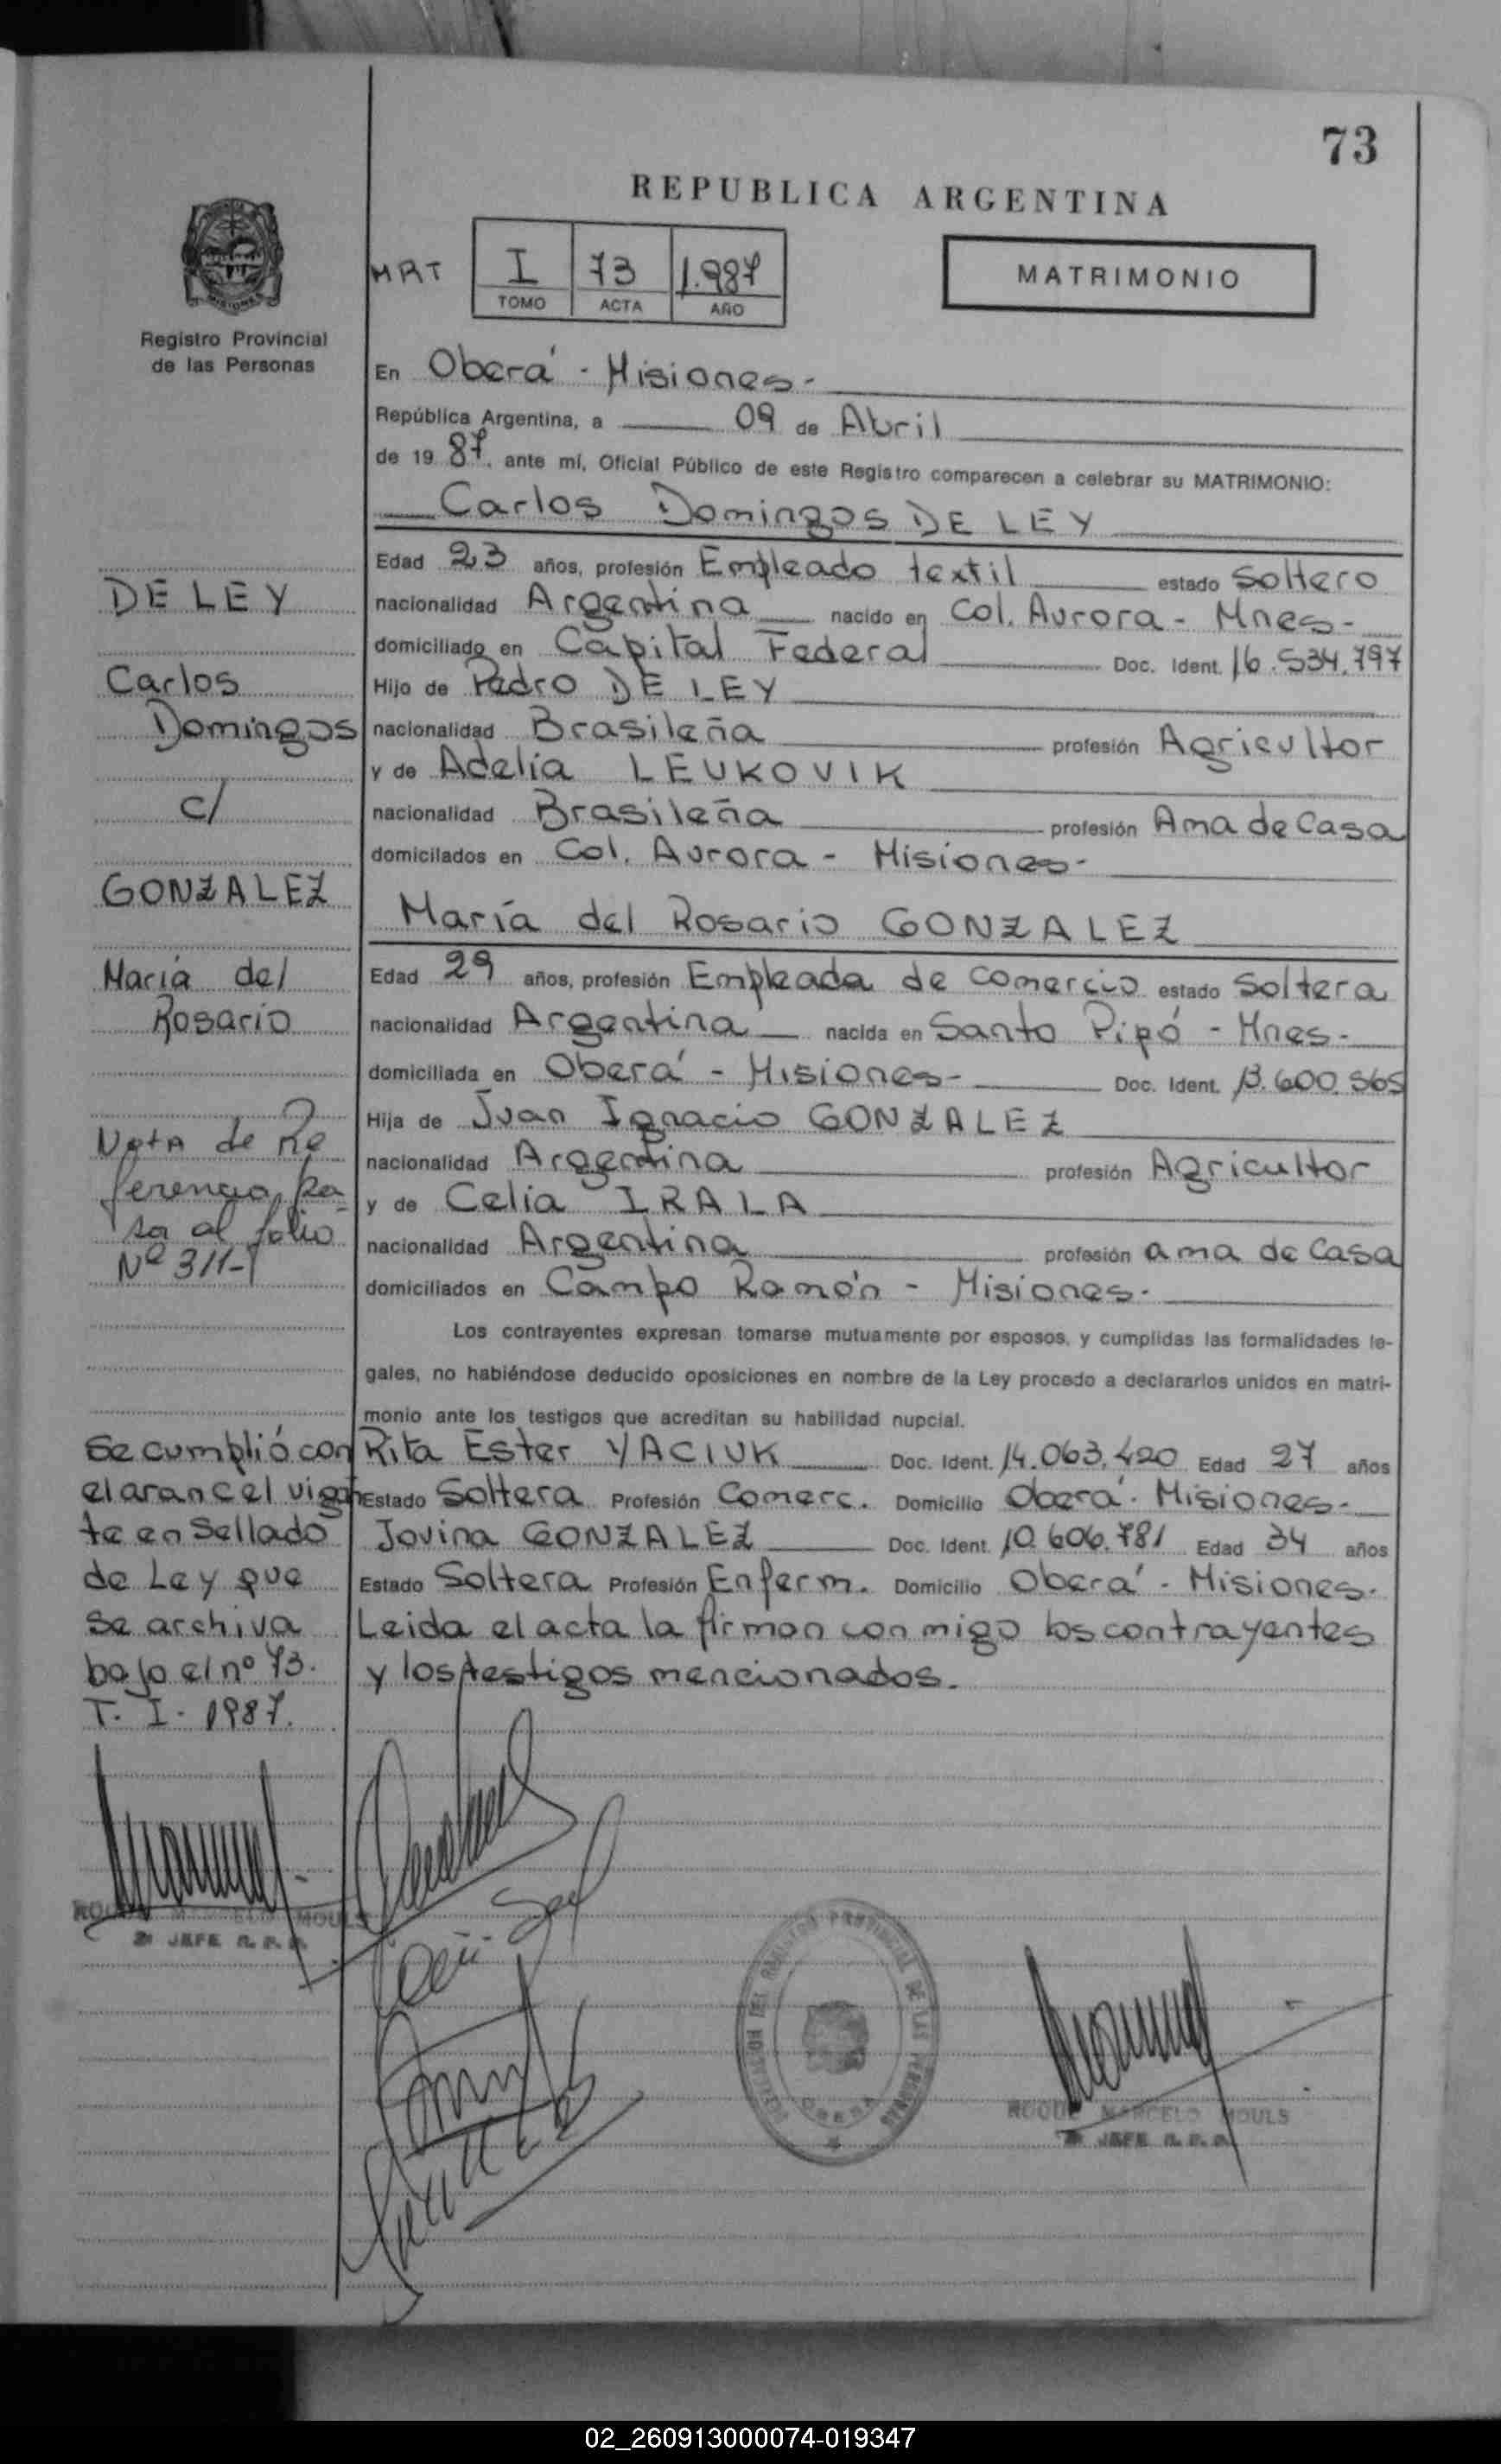 73
REPUBLICA ARGENTINA
MRT
I 73 1.987
TOMO ACTA AÑO
MATRIMONIO
Registro Provincial
de las Personas
En Oberá - Misiones-
República Argentina, a 09 de Abril
de 1987, ante mí, Oficial Público de este Registro comparecen a celebrar su MATRIMONIO:
Carlos Domingos DE LEY
Edad 23 años, profesión Empleado textil estado Soltero
nacionalidad Argentina nacido en Col. Aurora - Mnes-
domiciliado en Capital Federal Doc. Ident. 16.534.797
Hijo de Pedro DE LEY
nacionalidad Brasileña profesión Agricultor
y de Adelia LEUKOVIK
nacionalidad Brasileña profesión Ama de Casa
domicilados en Col. Aurora - Misiones-
María del Rosario GONZALEZ
Edad 29 años, profesión Empleada de comercio estado Soltera
nacionalidad Argentina nacida en Santo Pipó - Mnes-
domiciliada en Oberá - Misiones- Doc. Ident. 13.600.565
Hija de Juan Ignacio GONZALEZ
nacionalidad Argentina profesión Agricultor
y de Celia IRALA
nacionalidad Argentina profesión ama de Casa
domiciliados en Campo Ramón - Misiones-
Los contrayentes expresan tomarse mutuamente por esposos, y cumplidas las formalidades le-
gales, no habiéndose deducido oposiciones en nombre de la Ley procedo a declararlos unidos en matri-
monio ante los testigos que acreditan su habilidad nupcial.
Rita Ester YACIUK Doc. Ident. 14.063.420 Edad 27 años
Estado Soltera Profesión Comerc. Domicilio Oberá - Misiones-
Jovina GONZALEZ Doc. Ident. 10.606.781 Edad 34 años
Estado Soltera Profesión Enferm. Domicilio Oberá - Misiones.
Leida el acta la firman conmigo los contrayentes
y los testigos mencionados.
DE LEY
Carlos
Domingos
c/
GONZALEZ
María del
Rosario
Nota de Re
ferencia pa-
sa al folio
Nº 311-
Se cumplió con
el arancel vigen
te en Sellado
de Ley que
se archiva
bajo el nº 73.
T. I. 1987.
ROQUE MARCELO MOULS
JEFE R. P. P.
DELEGACION DEL REGISTRO PROVINCIAL DE LAS PERSONAS
OBERA
ROQUE MARCELO MOULS
JEFE R. P. P.
02_260913000074-019347